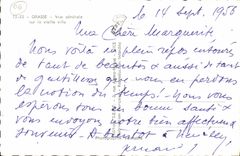 12-23 - GRASSE - Vue générale
sur la vieille ville
le 14 Sept. 1956
Ma Chère Marguerite
Nous voilà en plein repos entourés
de tant de beautés & aussi de tant
de gentillesse que nous en perdons
la notion du temps! Nous vous
espérons tous en bonne santé &
vous envoyons notre bien affectueux
souvenir. A bientôt à